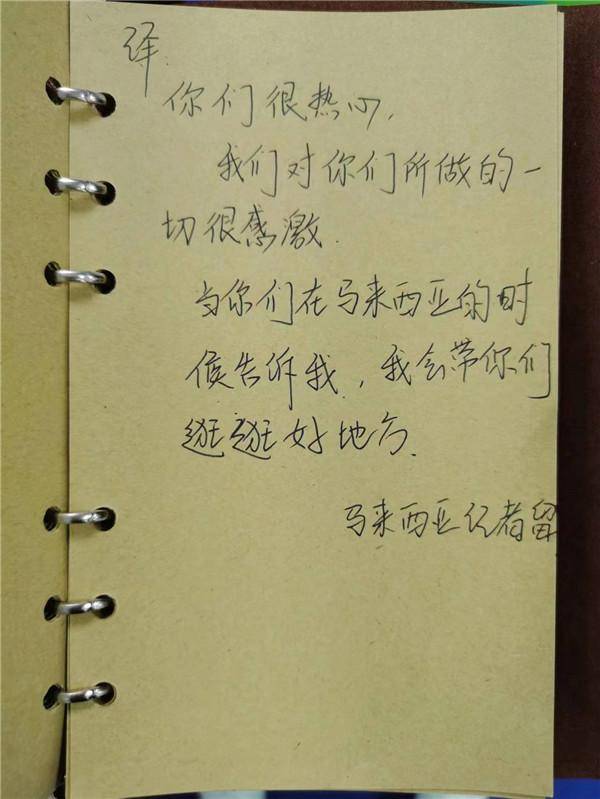 译
你们很热心,
我们对你们所做的一
切很感激.
当你们在马来西亚的时
侯告诉我，我会带你们
逛逛好地方.
马来西亚记者留